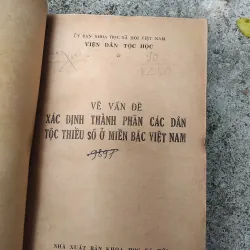 ỦY BAN KHOA HỌC XÃ HỘI VIỆT NAM
VIỆN DÂN TỘC HỌC
VỀ VẤN ĐỀ
XÁC ĐỊNH THÀNH PHẦN CÁC DÂN
TỘC THIỂU SỐ Ở MIỀN BẮC VIỆT NAM
NHÀ XUẤT BẢN KHOA HỌC XÃ HỘI